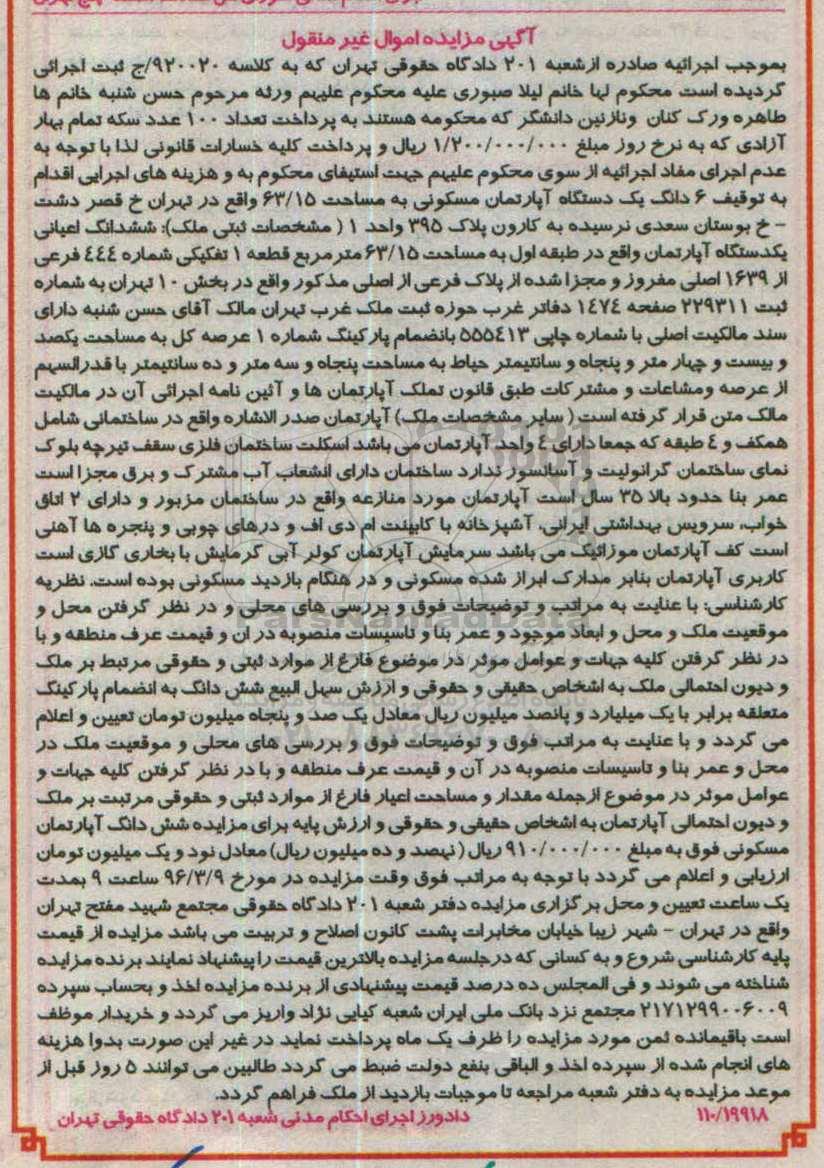 آگهی مزایده اموال غیر منقول
بموجب اجرائیه صادره ازشعبه ۲۰۱ دادگاه حقوقی تهران که به کلاسه ۹۲۰۰۲۰/ج ثبت اجرائی
گردیده است محکوم لها خانم لیلا صبوری علیه محکوم علیهم ورثه مرحوم حسن شنبه خانم ها
طاهره ورک کنان ونازنین دانشگر که محکومه هستند به پرداخت تعداد ۱۰۰ عدد سکه تمام بهار
آزادی که به نرخ روز مبلغ ۱/۲۰۰/۰۰۰/۰۰۰ ریال و پرداخت کلیه خسارات قانونی لذا با توجه به
عدم اجرای مفاد اجرائیه از سوی محکوم علیهم جهت استیفای محکوم به و هزینه های اجرایی اقدام
به توقیف ۶ دانگ یک دستگاه آپارتمان مسکونی به مساحت ۶۳/۱۵ واقع در تهران خ قصر دشت
- خ بوستان سعدی نرسیده به کارون پلاک ۳۹۵ واحد ۱ ( مشخصات ثبتی ملک): ششدانگ اعیانی
یکدستگاه آپارتمان واقع در طبقه اول به مساحت ۶۳/۱۵ مترمربع قطعه ۱ تفکیکی شماره ۴۴۴ فرعی
از ۱۶۳۹ اصلی مفروز و مجزا شده از پلاک فرعی از اصلی مذکور واقع در بخش ۱۰ تهران به شماره
ثبت ۲۲۹۳۱۱ صفحه ۱۴۷۴ دفاتر غرب حوزه ثبت ملک غرب تهران مالک آقای حسن شنبه دارای
سند مالکیت اصلی با شماره چاپی ۵۵۵۴۱۳ بانضمام پارکینگ شماره ۱ عرصه کل به مساحت یکصد
و بیست و چهار متر و پنجاه و سانتیمتر حیاط به مساحت پنجاه و سه متر و ده سانتیمتر با قدرالسهم
از عرصه ومشاعات و مشترکات طبق قانون تملک آپارتمان ها و آئین نامه اجرائی آن در مالکیت
مالک متن قرار گرفته است ( سایر مشخصات ملک) آپارتمان صدر الاشاره واقع در ساختمانی شامل
همکف و ٤ طبقه که جمعا دارای ٤ واحد آپارتمان می باشد اسکلت ساختمان فلزی سقف تیرچه بلوک
نمای ساختمان گرانولیت و آسانسور ندارد ساختمان دارای انشعاب آب مشترک و برق مجزا است
عمر بنا حدود بالا ۳۵ سال است آپارتمان مورد منازعه واقع در ساختمان مزبور و دارای ۲ اتاق
خواب، سرویس بهداشتی ایرانی، آشپزخانه با کابینت ام دی اف و درهای چوبی و پنجره ها آهنی
است کف آپارتمان موزائیک می باشد سرمایش آپارتمان کولر آبی گرمایش با بخاری گازی است
کاربری آپارتمان بنابر مدارک ابراز شده مسکونی و در هنگام بازدید مسکونی بوده است. نظریه
کارشناسی: با عنایت به مراتب و توضیحات فوق و بررسی های محلی و در نظر گرفتن محل و
موقعیت ملک و محل و ابعاد موجود و عمر بنا و تاسیسات منصوبه در ان و قیمت عرف منطقه و با
در نظر گرفتن کلیه جهات و عوامل موثر در موضوع فارغ از موارد ثبتی و حقوقی مرتبط بر ملک
و دیون احتمالی ملک به اشخاص حقیقی و حقوقی و ارزش سهل البیع شش دانگ به انضمام پارکینگ
متعلقه برابر با یک میلیارد و پانصد میلیون ریال معادل یک صد و پنجاه میلیون تومان تعیین و اعلام
می گردد و با عنایت به مراتب فوق و توضیحات فوق و بررسی های محلی و موقعیت ملک در
محل و عمر بنا و تاسیسات منصوبه در آن و قیمت عرف منطقه و با در نظر گرفتن کلیه جهات و
عوامل موثر در موضوع ازجمله مقدار و مساحت اعیار فارغ از موارد ثبتی و حقوقی مرتبت بر ملک
و دیون احتمالی آپارتمان به اشخاص حقیقی و حقوقی و ارزش پایه برای مزایده شش دانگ آپارتمان
مسکونی فوق به مبلغ ۹۱۰/۰۰۰/۰۰۰ ریال ( نهصد و ده میلیون ریال) معادل نود و یک میلیون تومان
ارزیابی و اعلام می گردد با توجه به مراتب فوق وقت مزایده در مورخ ۹۶/۳/۹ ساعت ۹ بمدت
یک ساعت تعیین و محل برگزاری مزایده دفتر شعبه ۲۰۱ دادگاه حقوقی مجتمع شهید مفتح تهران
واقع در تهران - شهر زیبا خیابان مخابرات پشت کانون اصلاح و تربیت می باشد مزایده از قیمت
پایه کارشناسی شروع و به کسانی که درجلسه مزایده بالاترین قیمت را پیشنهاد نمایند برنده مزایده
شناخته می شوند و فی المجلس ده درصد قیمت پیشنهادی از برنده مزایده اخذ و بحساب سپرده
۲۱۷۱۲۹۹۰۰۶۰۰۹ مجتمع نزد بانک ملی ایران شعبه کیایی نژاد واریز می گردد و خریدار موظف
است باقیمانده ثمن مورد مزایده را ظرف یک ماه پرداخت نماید در غیر این صورت بدوا هزینه
های انجام شده از سپرده اخذ و الباقی بنفع دولت ضبط می گردد طالبین می توانند ۵ روز قبل از
موعد مزایده به دفتر شعبه مراجعه تا موجبات بازدید از ملک فراهم گردد.
۱۱۰/۱۹۹۱۸ دادورز اجرای احکام مدنی شعبه ۲۰۱ دادگاه حقوقی تهران
ParsNamadData